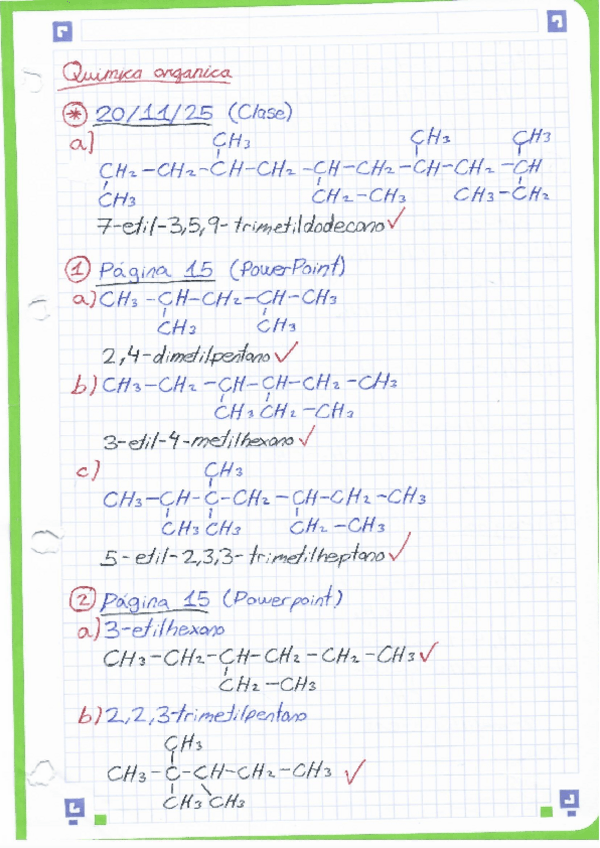 Química organica
* 20/11/25 (Clase)
a]
CH3 CH3 CH3
CH2-CH2-CH-CH2-CH-CH2-CH-CH2-CH
CH3 CH2-CH3 CH3-CH2
7-etil-3,5,9-trimetildodecano ✓
1 Página 15 (PowerPoint)
a) CH3-CH-CH2-CH-CH3
CH3 CH3
2,4-dimetilpentano ✓
b) CH3-CH2-CH-CH-CH2-CH3
CH3 CH2-CH3
3-etil-4-metilhexano ✓
c) CH3
CH3-CH-C-CH2-CH-CH2-CH3
CH3 CH3 CH2-CH3
5-etil-2,3,3-trimetilheptano ✓
2 Página 15 (Powerpoint)
a) 3-etilhexano
CH3-CH2-CH-CH2-CH2-CH3 ✓
CH2-CH3
b) 2,2,3-trimetilpentano
CH3
CH3-C-CH-CH2-CH3 ✓
CH3 CH3